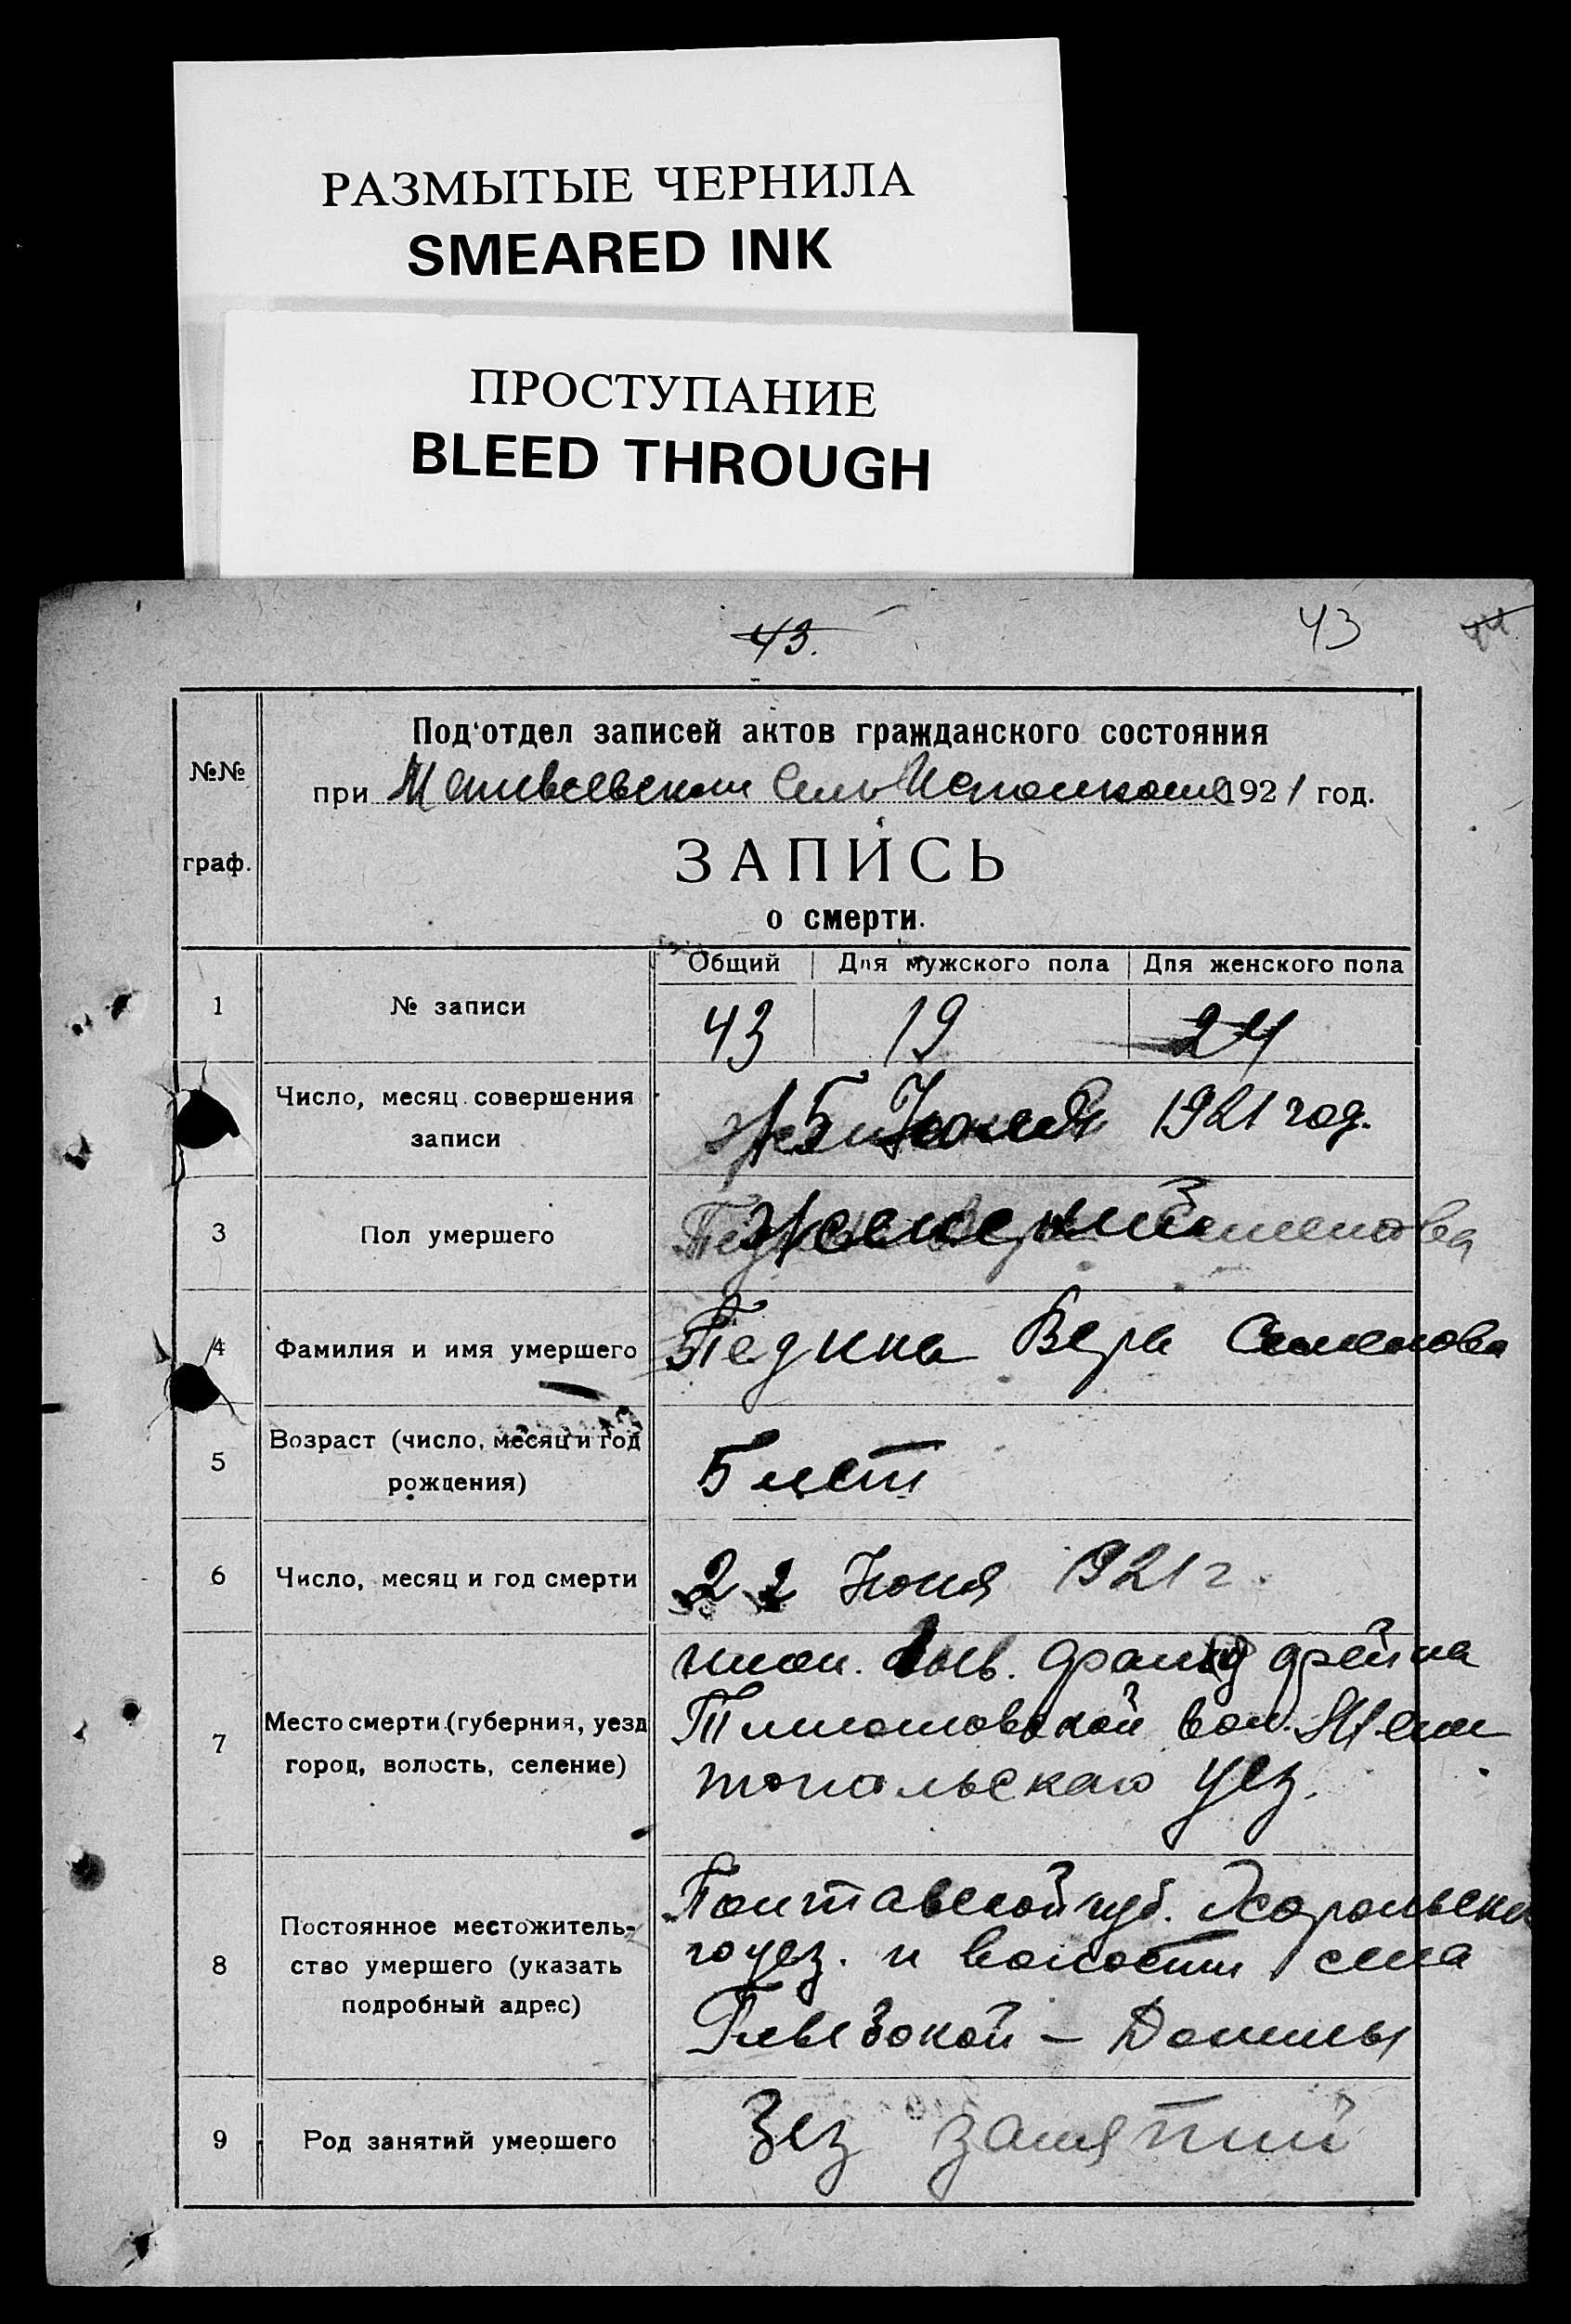 РАЗМЫТЫЕ ЧЕРНИЛА
SMEARED INK
ПРОСТУПАНИЕ
BLEED THROUGH
43.
43
Под'отдел записей актов гражданского состояния
№№
при 1921 год.
граф.
ЗАПИСЬ
о смерти.
Общий Для мужского пола Для женского пола
1 № записи 43 19 24
Число, месяц совершения
записи
15 1921 год.
3 Пол умершего женский
4 Фамилия и имя умершего Педина Вера Семенова
5 Возраст (число, месяц и год
рождения)
5 лет
6 Число, месяц и год смерти 22 Июня 1921 г.
7 Место смерти (губерния, уезд
город, волость, селение)
вол. Мели
топольскаго уез.
8 Постоянное местожитель-
ство умершего (указать
подробный адрес)
Полтавской губ. Хорольска
го уез. и волости села
Долины
9 Род занятий умершего Без занятий